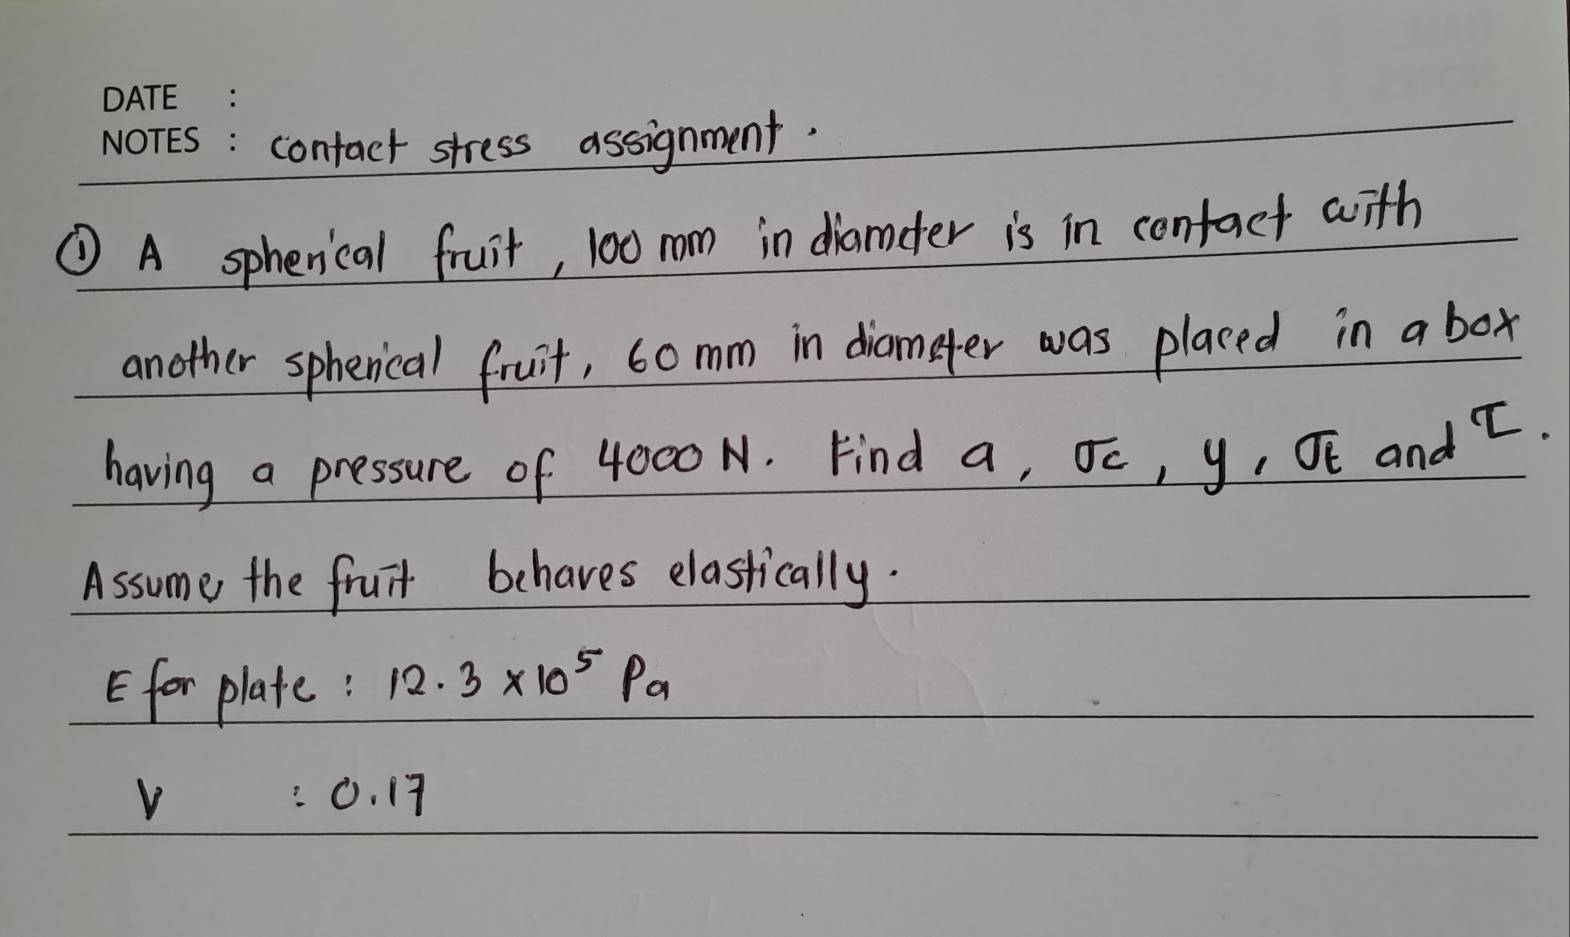 DATE :
NOTES : contact stress assignment.
① A spherical fruit, 100 mm in diameter is in contact with
another spherical fruit, 60 mm in diameter was placed in a box
having a pressure of 4000 N. Find a, σc, y, σt and τ.
Assume the fruit behaves elastically.
E for plate : 12.3 × 10⁵ Pa
V : 0.17